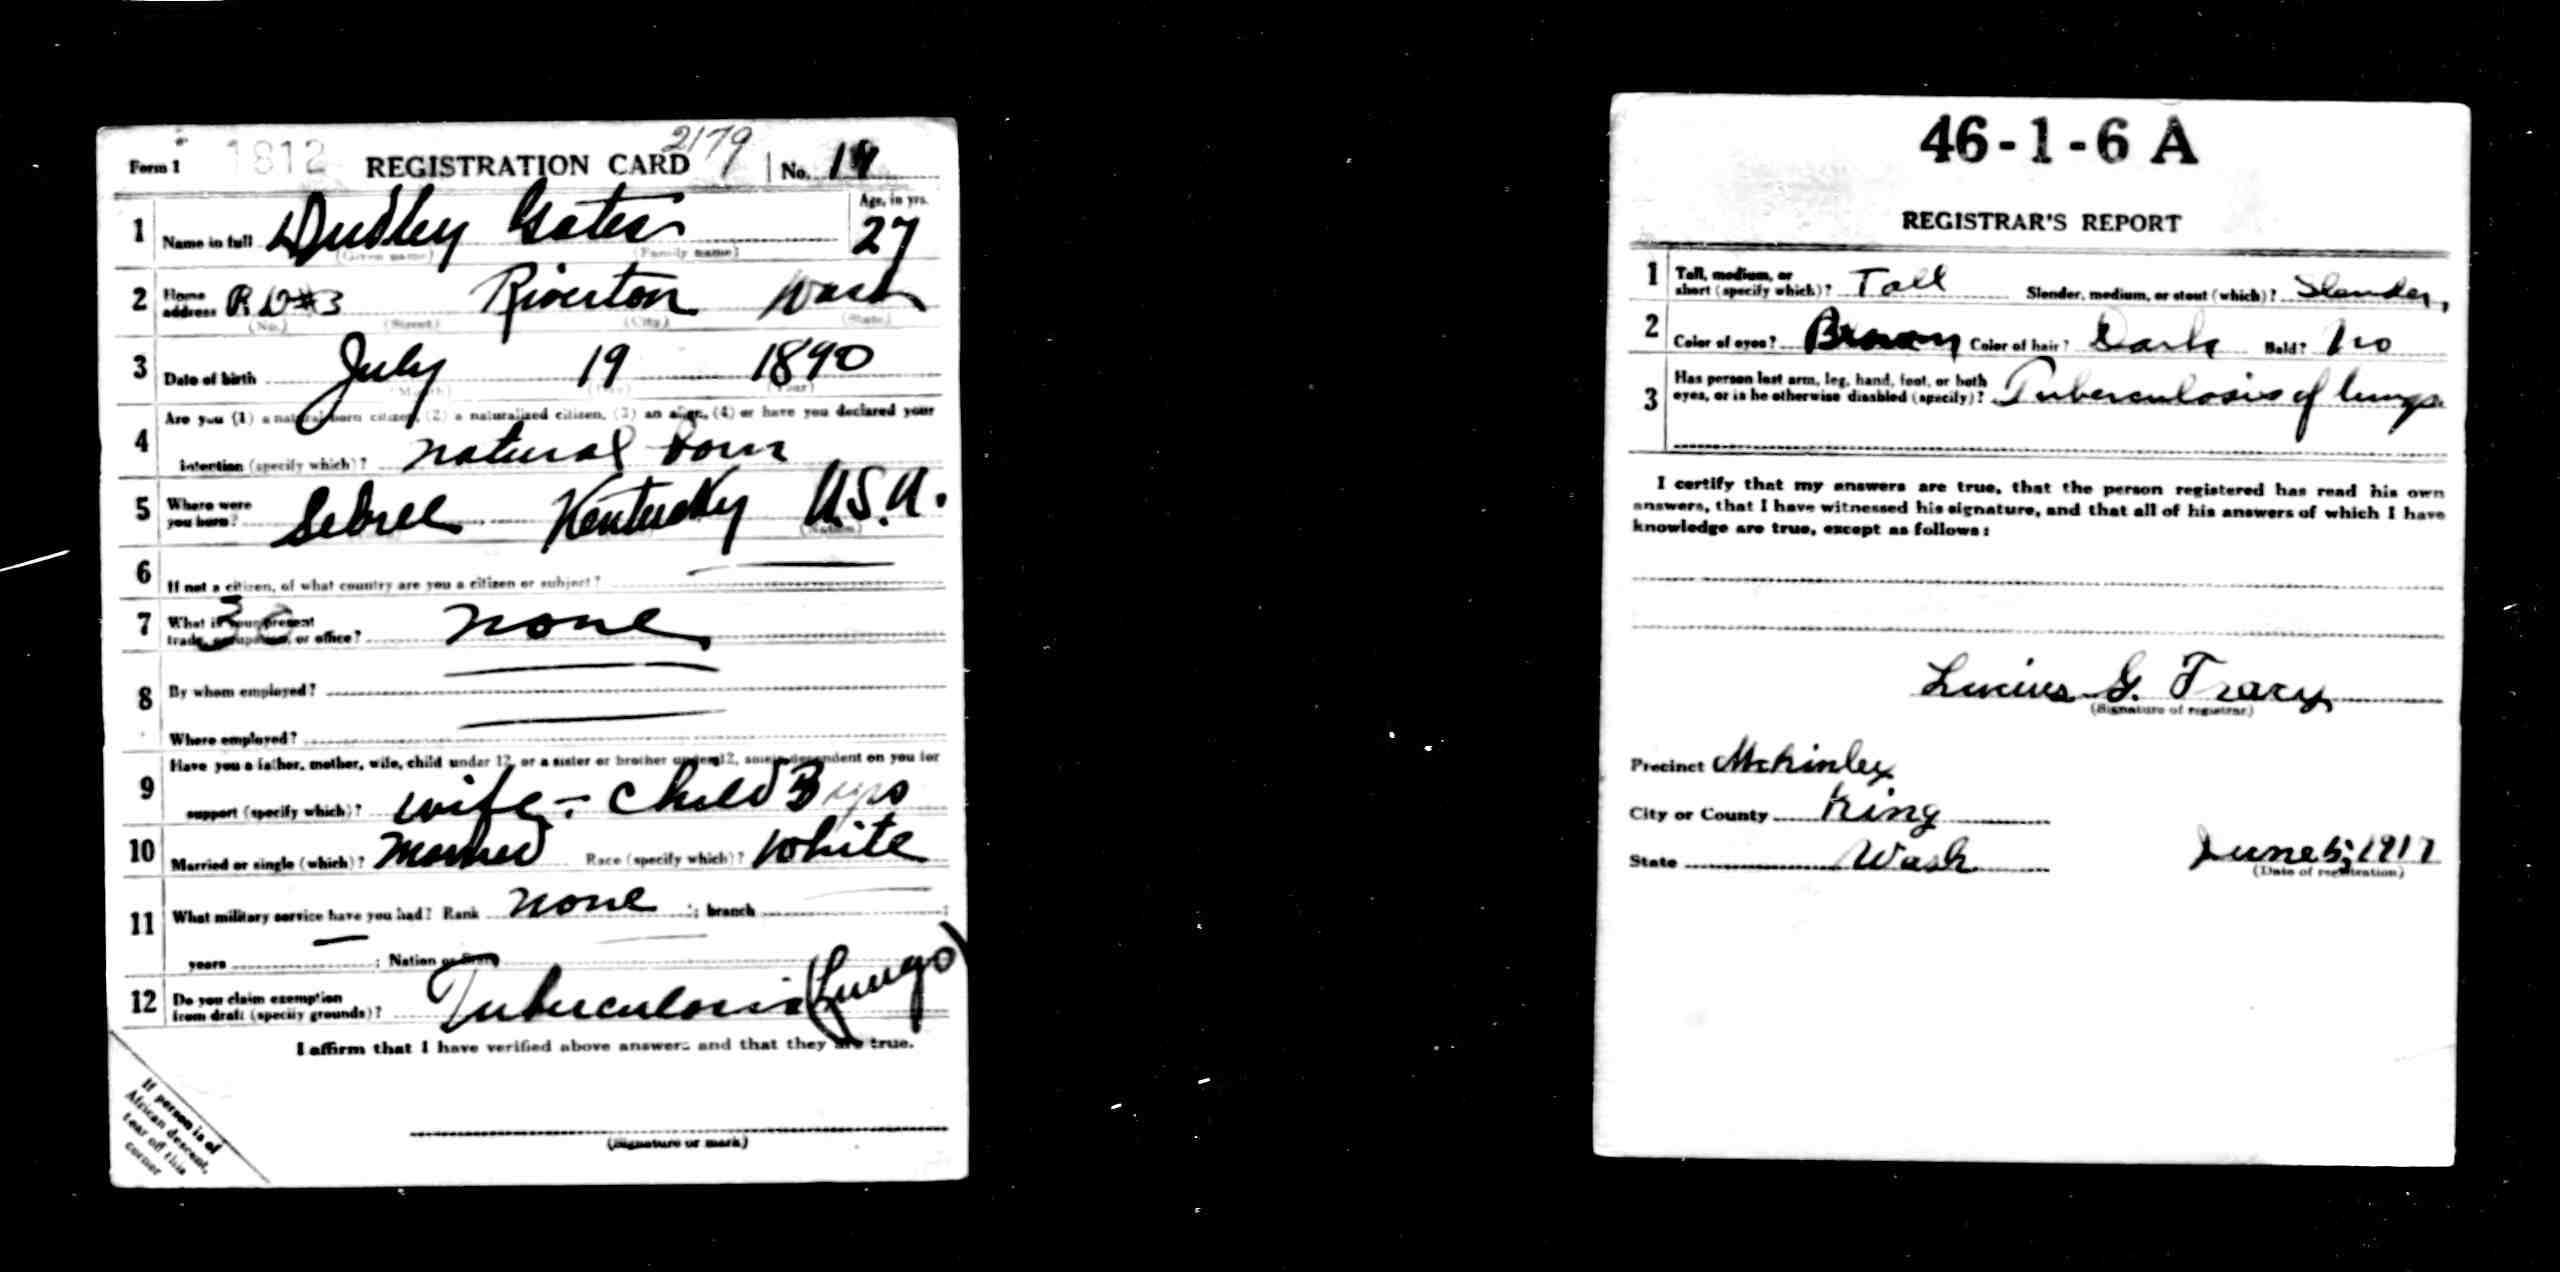 Form 1 1812 REGISTRATION CARD 2179 No.
Age, in yrs.
1 Name in full Dudley Gates 27
(Given name) (Family name)
2 Home address R D #3 Riverton Wash
(No.) (Street) (City) (State)
3 Date of birth July 19 1890
(Month) (Day) (Year)
Are you (1) a natural born citizen, (2) a naturalized citizen, (3) an alien, (4) or have you declared your
4 intention (specify which)? natural born
5 Where were you born? Sebree Kentucky U.S.A.
(Nation)
6 If not a citizen, of what country are you a citizen or subject?
7 What is your present
trade, occupation, or office? none
8 By whom employed?
Where employed?
Have you a father, mother, wife, child under 12, or a sister or brother under 12, solely dependent on you for
9 support (specify which)? wife - child 3 yrs
10 Married or single (which)? Married Race (specify which)? White
11 What military service have you had? Rank none ; branch ;
years ; Nation or State
12 Do you claim exemption
from draft (specify grounds)? Tuberculosis (Lungs)
I affirm that I have verified above answers and that they are true.
(Signature or mark)
If person is of
African descent,
tear off this
corner
46-1-6 A
REGISTRAR'S REPORT
1 Tall, medium, or
short (specify which)? Tall Slender, medium, or stout (which)? Slender,
2 Color of eyes? Brown Color of hair? Dark Bald? No
3 Has person lost arm, leg, hand, foot, or both
eyes, or is he otherwise disabled (specify)? Tuberculosis of lungs.
I certify that my answers are true, that the person registered has read his own
answers, that I have witnessed his signature, and that all of his answers of which I have
knowledge are true, except as follows:
Lucius G. Tracy
(Signature of registrar)
Precinct McKinley
City or County King
State Wash June 5, 1917
(Date of registration)